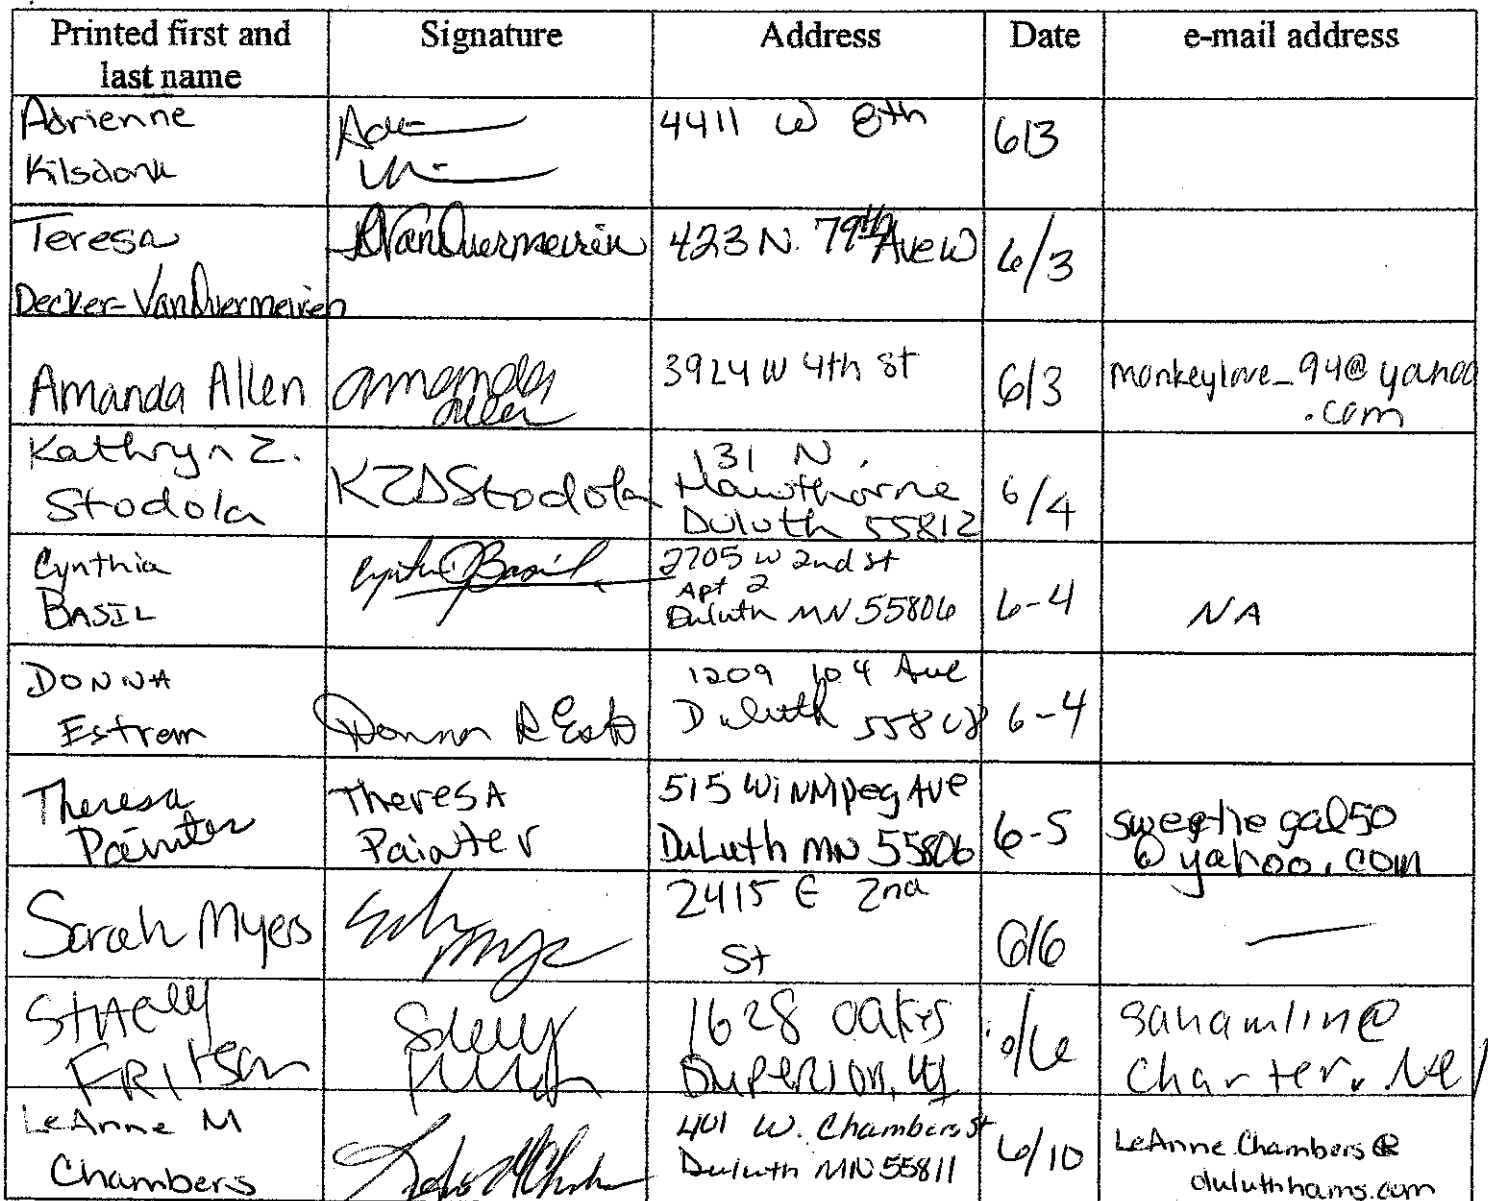 Printed first and last name Signature Address Date e-mail address
Adrienne
Kilsdonk
4411 W 8th
6/3
Teresa
Decker-VanDuermeiren
423 N. 79th Ave W
6/3
Amanda Allen
amanda
allen
3924 W 4th St
6/3
monkeylove_94@yahoo
.com
Kathryn Z.
Stodola
KZDStodola
131 N.
Hawthorne
Duluth 55812
6/4
Cynthia
BASIL
2705 W 2nd St
Apt 2
Duluth MN 55806
6-4
NA
DONNA
Estrem
Donna R
1209 104 Ave
Duluth 55808
6-4
Theresa
Painter
TheresA
Painter
515 WiNNipeg AVe
DuLuth MN 55806
6-5
@yahoo.com
Sarah Myers
2415 E 2nd
St
6/6
1628 Oakes
Superior, WI
/6
sahamlin@
Charter.Net
LeAnne M
Chambers
401 W. Chambers St
Duluth MN 55811
6/10
LeAnne.Chambers@
duluthhams.com